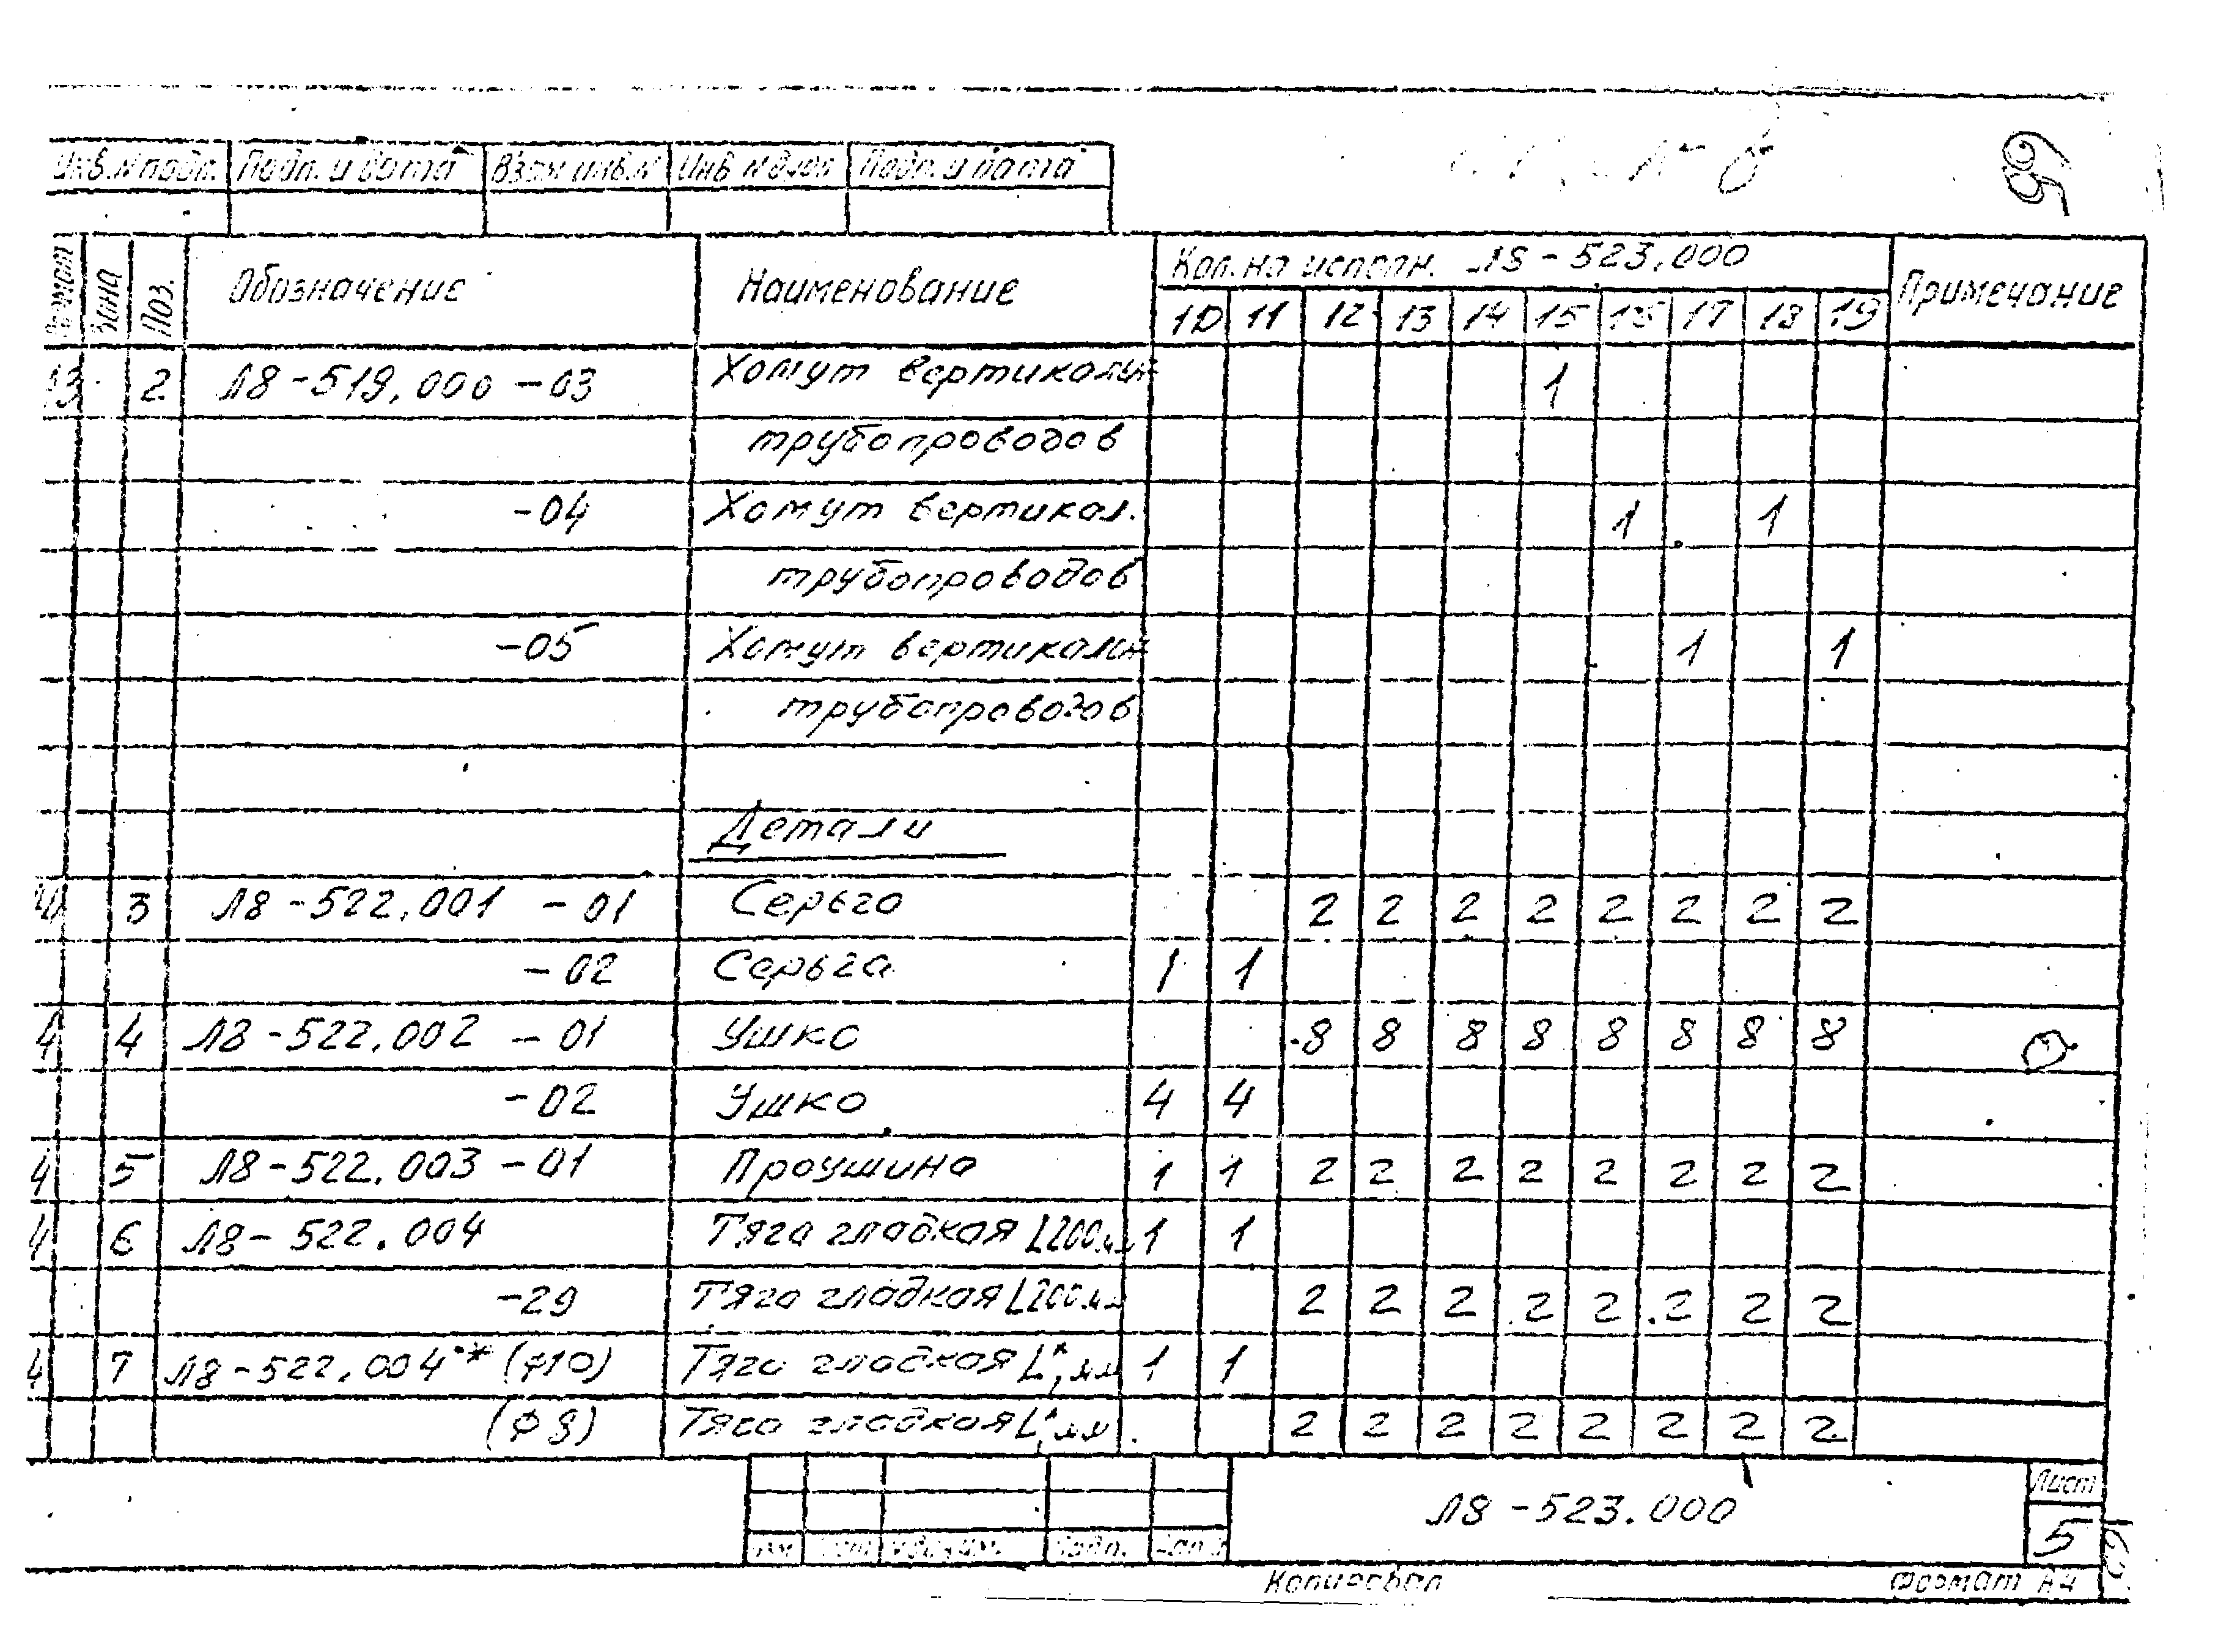 Инв.N подл. Подп. и дата Взам инв.N Инв N дубл Подп. и дата
Формат Зона Поз. Обозначение Наименование Кол. на исполн. Л8-523.000 Примечание
10 11 12 13 14 15 16 17 18 19
2 Л8-519.000-03 Хомут вертикальн 1
трубопроводов
-04 Хомут вертикал. 1 1
трубопроводов
-05 Хомут вертикальн 1 1
трубопроводов
Детали
3 Л8-522.001 -01 Серьга 2 2 2 2 2 2 2 2
-02 Серьга 1 1
4 4 Л8-522.002 -01 Ушко 8 8 8 8 8 8 8 8
-02 Ушко 4 4
4 5 Л8-522.003 -01 Проушина 1 1 2 2 2 2 2 2 2 2
4 6 Л8-522.004 Тяга гладкая L200мм 1 1
-29 Тяга гладкая L200мм 2 2 2 2 2 2 2 2
4 7 Л8-522.004** (ф10) Тяга гладкая L*,мм 1 1
(ф8) Тяга гладкая L*,мм 2 2 2 2 2 2 2 2
Л8-523.000 Лист
5
Изм Лист N докум. Подп. Дата
Копировал Формат А4